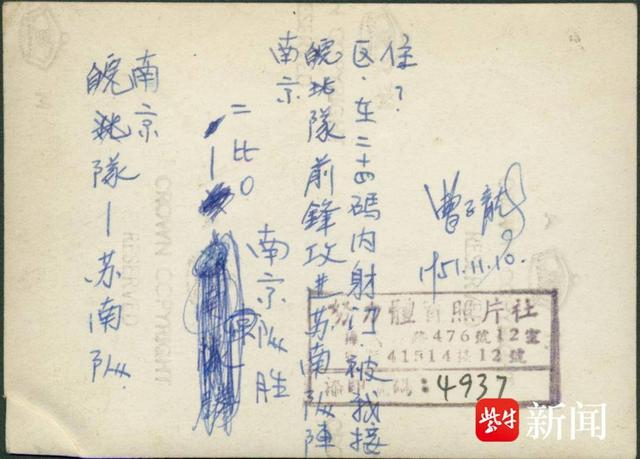 南京
皖北隊—苏南队
二比〇 南京队胜
南京
皖北隊前鋒攻进苏南队陣
区.在二十四碼内射门被我接
住?
曹子龍
1951.11.10.
體育照片社
路476號12室
41514 12號
添印 碼:4937
CROWN COPYRIGHT
RESERVED
紫牛新闻